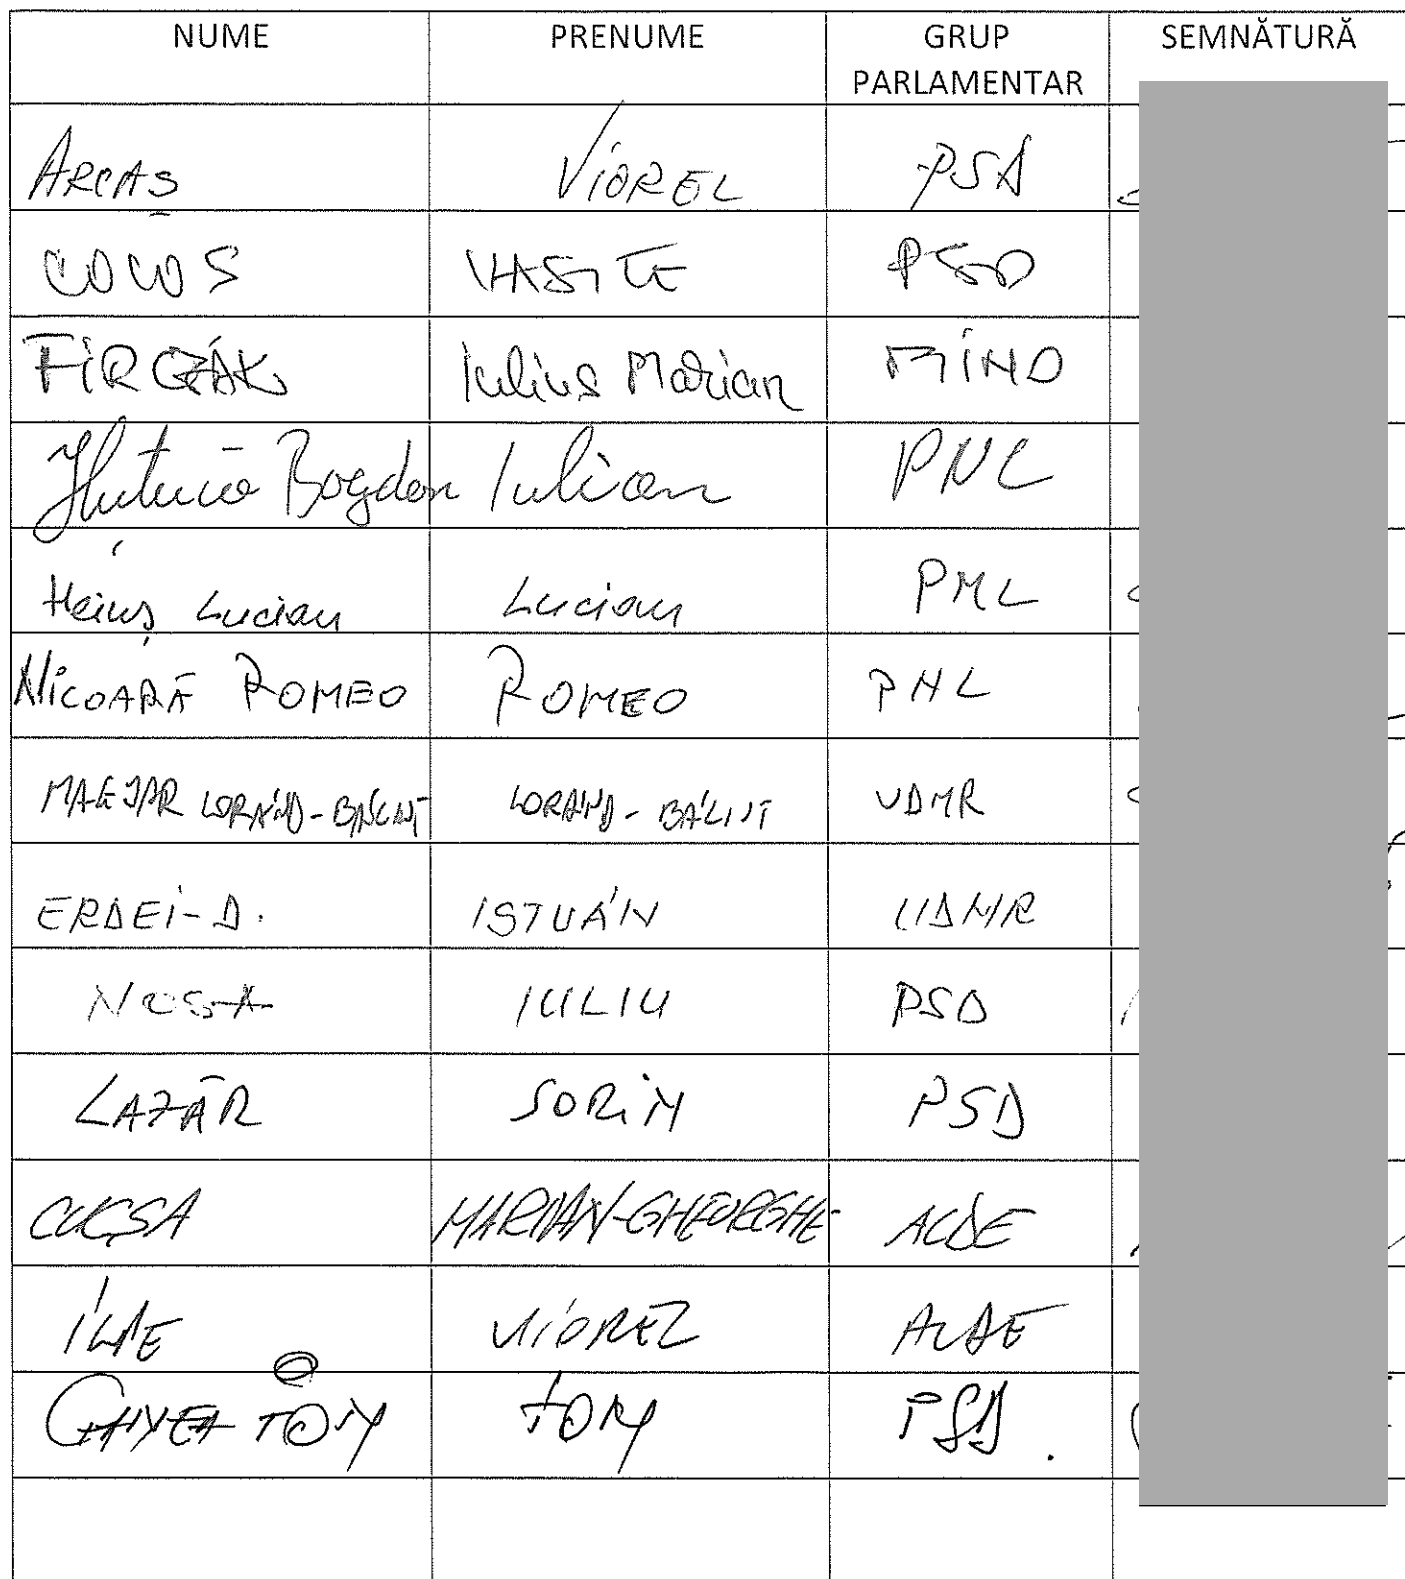 NUME PRENUME GRUP PARLAMENTAR SEMNĂTURĂ
ARCAȘ VIOREL PSD
COCOȘ VASILE PSD
FIRCZÁK Iulius Marian MIND
Huțucă Bogdan Iulian PNL
Heiuș Lucian Lucian PNL
NICOARĂ ROMEO ROMEO PNL
MAGYAR LORÁND-BÁLINT LORÁND-BÁLINT UDMR
ERDEI-D. ISTVÁN UDMR
NOSA IULIU PSD
LAZĂR SORIN PSD
CUCȘA MARIAN-GHEORGHE ALDE
ILIE VIOREL ALDE
TOM PSD.